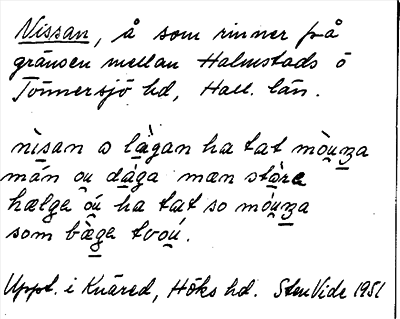 Nissan, å som rinner på
gränsen mellan Halmstads o
Tönnersjö hd, Hall. län.
nìsan o là̱gan ha tat mò̱u̱n̠a
mán o̱u̱ dá̱ga mæn stà̱re
hælga ó̱u̱ ha tat so mó̱u̱n̠a
som bæ̱̀ga tvo̱ú̱.
Uppt. i Knäred, Höks hd. Sten Vide 1951